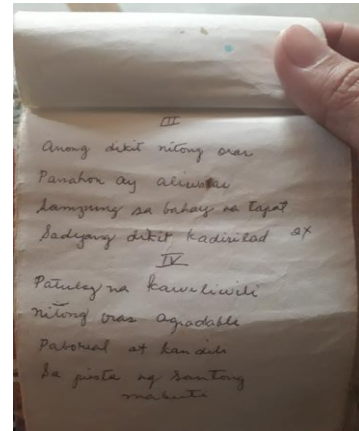 III
Anong dikit nitong oras
Panahon ay aliwalas
Lampung sa bahay na tapat
Sadyang dikit kadinilad 2x
IV
Patuloy na kawiliwili
nitong oras agradable
Paboreal at kandili
Sa pista ng Santong
mabuti